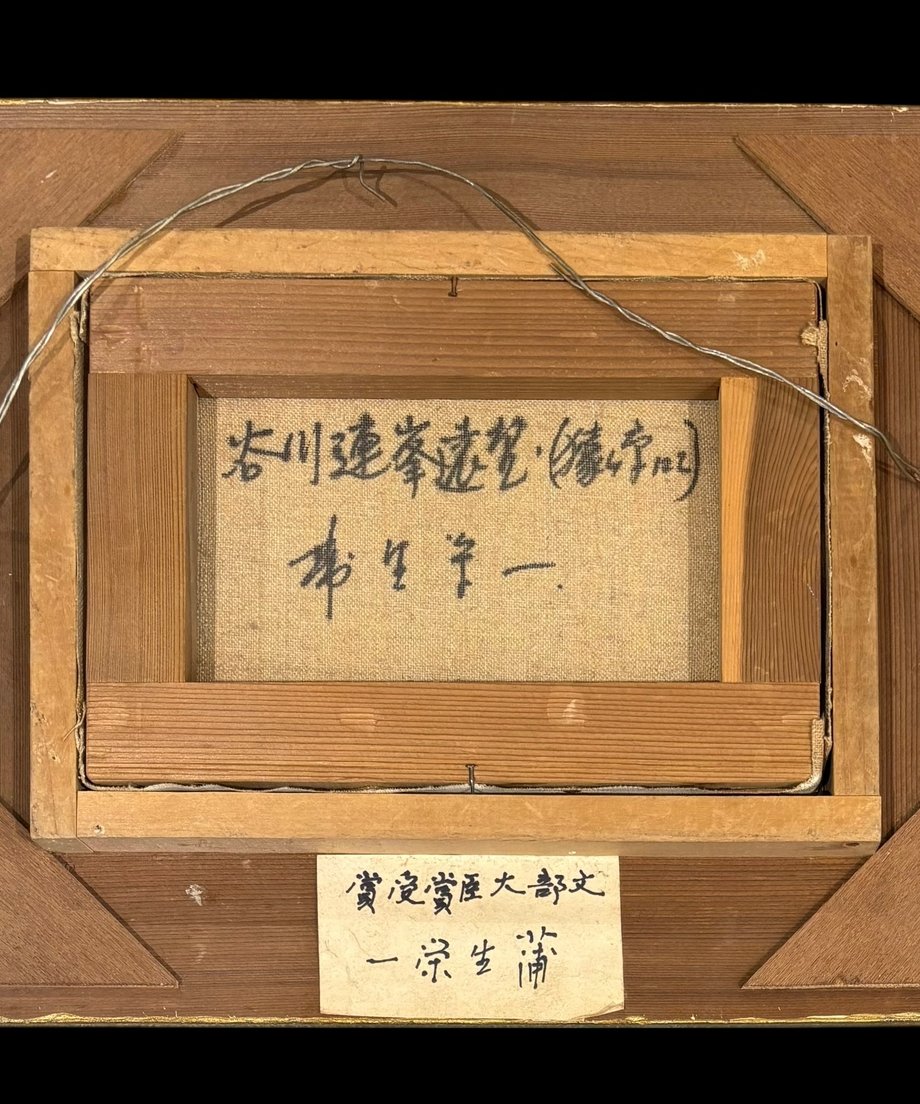 谷川連峯遠望・
蒲生栄一.
文部大臣賞受賞
蒲生栄一